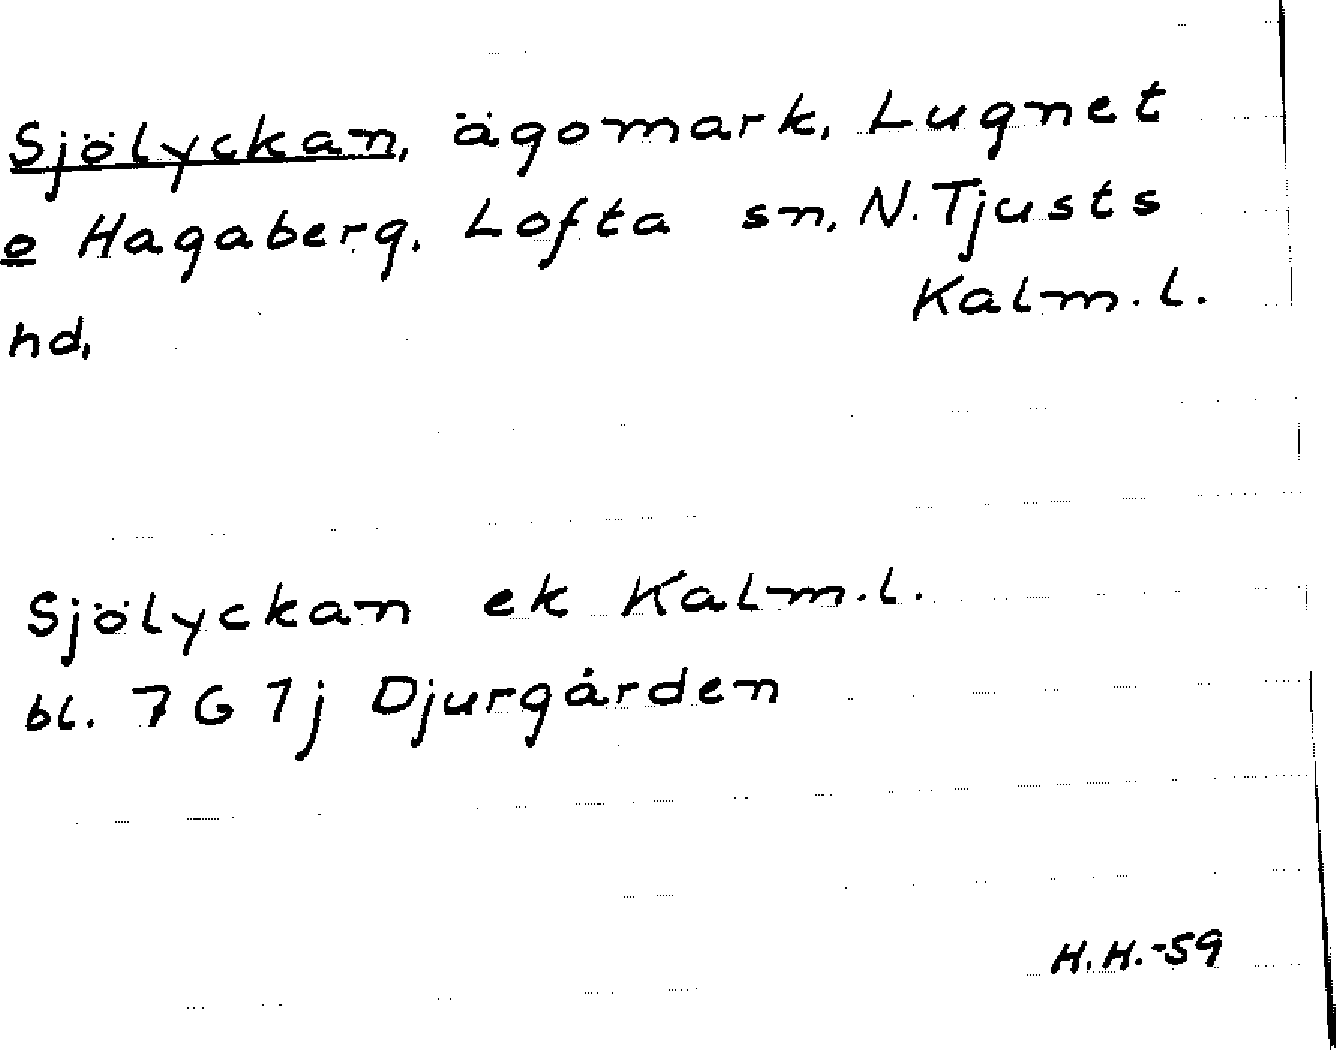 Sjölyckan, ägomark, Lugnet
o Hagaberg. Lofta sn, N. Tjusts
hd, Kalm. l.
Sjölyckan ek Kalm. l.
bl. 7 G 1j Djurgården
H. H. -59